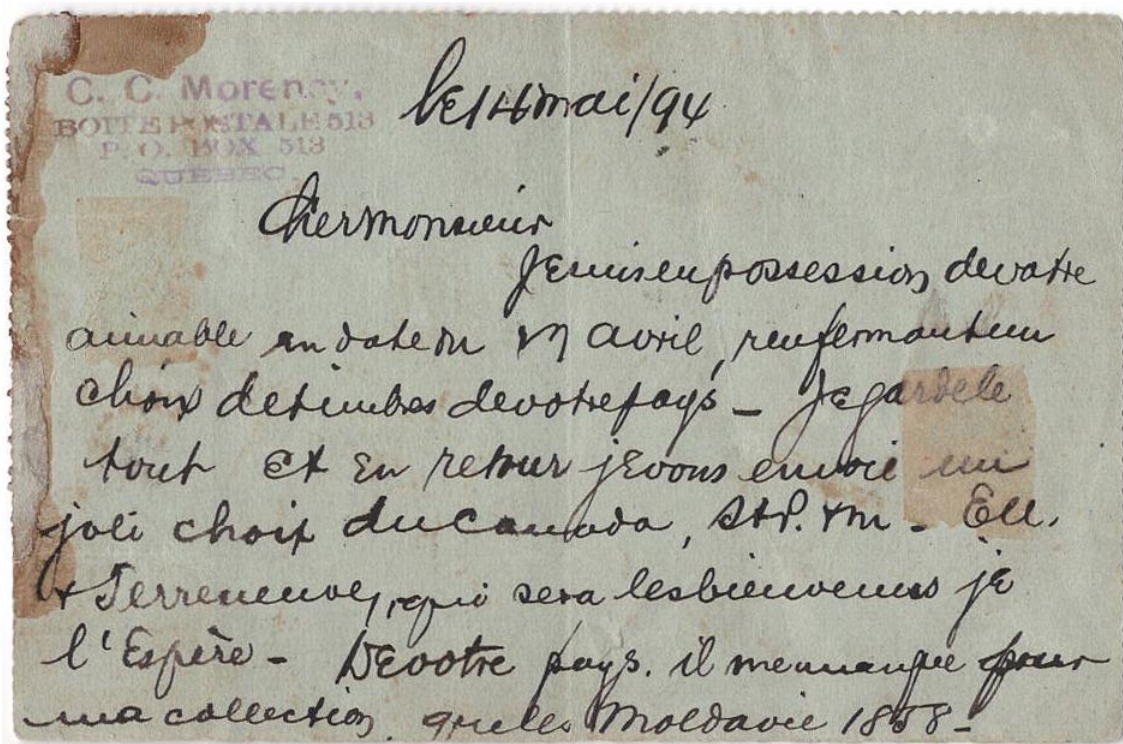 C. C. Morency,
BOITE POSTALE 513
P. O. BOX 513
QUEBEC.
le 14 mai/94
Cher monsieur
Je suis en possession de votre
aimable en date du avril, renfermant un
choix de timbres de votre pays – Je garde le
tout et en retour je vous envoie un
joli choix du Canada, St P. & M –
& Terreneuve, qui sera les bienvenus je
l'Espère – De votre pays. il me manque pour
ma collection que les Moldavie 1858 –